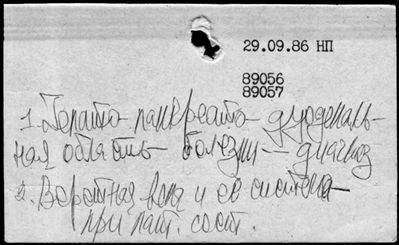 29.09.86 НП
89056
89057
1. Гепато-панкреато-дуоденаль-
ная область - болезни - диагноз
2. Воротная вена и ее система -
при пат. сост.